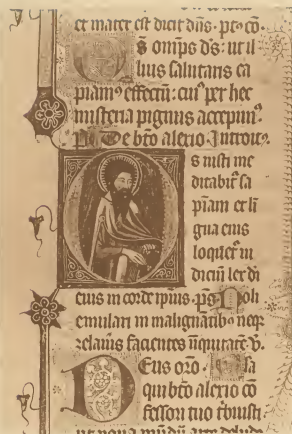 et mater est dicit dñs. ptᵒ cõ.
omnips ds ut il
lius salutaris ca
piamꝰ effectũ: cuiꝰ per hec
misteria pignus accepimꝰ.
De bto alexio Introitꝰ.
s iusti me
ditabitᷣ sa
piam et li
gua eius
loquetᷣ iu
diciũ lex di
eius in corde ipius. pṡ Noli
emulari in malignãtibꝰ neqꝫ
zelatus facientes iniquitatẽ v̄.
Deus oro. 
qui bto alexio cõ
fessori tuo tribuisti